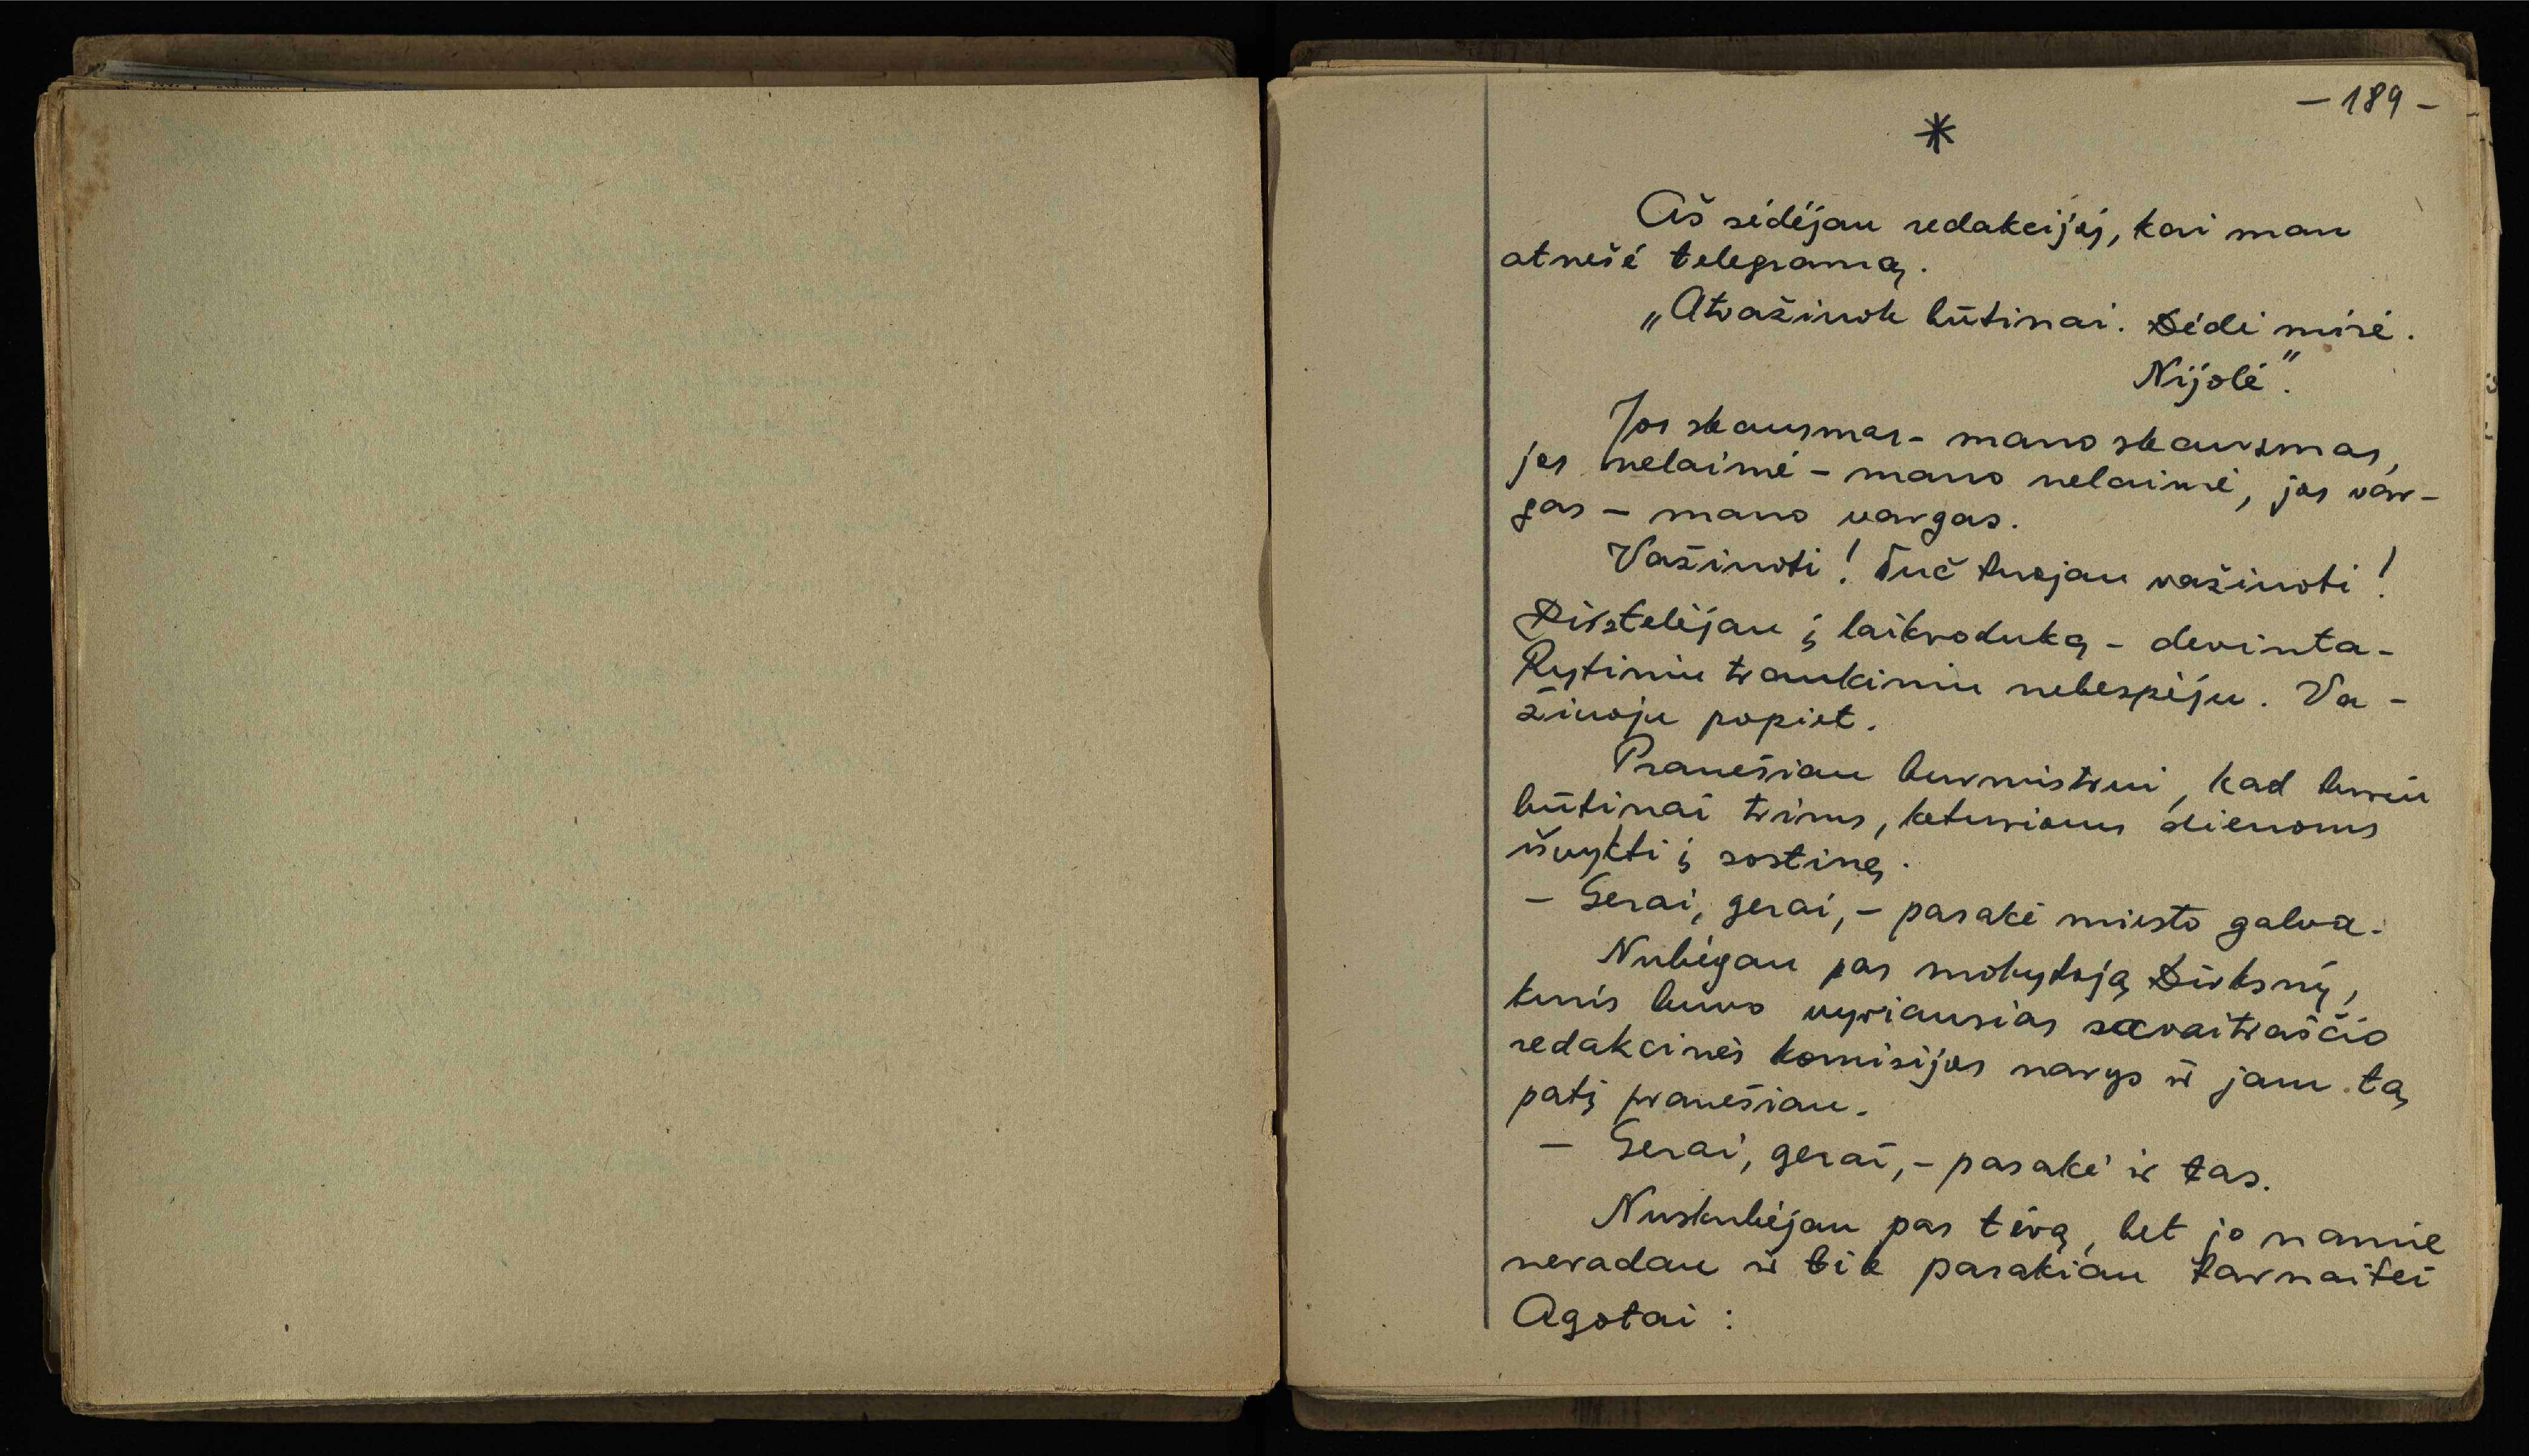 – 189 –
*
Aš sėdėjau redakcijoj, kai man
atnešė telegramą.
„Atvažiuok būtinai. Dėdė mirė.
Nijolė".
Jos skausmas – mano skausmas,
jos nelaimė – mano nelaimė, jos var-
gas – mano vargas.
Važiuoti! Tuč tuojau važiuoti!
Dirstelėjau į laikroduką – devinta.
Rytiniu traukiniu nebespėju. Va-
žiuoju popiet.
Pranešiau burmistrui, kad turiu
būtinai trims, keturioms dienoms
išvykti į sostinę.
– Gerai, gerai, – pasakė miesto galva.
Nubėgau pas mokytoją Dirksnį,
kuris buvo vyriausias savaitraščio
redakcinės komisijos narys ir jam tą
patį pranešiau.
– Gerai, gerai, – pasakė ir tas.
Nuskubėjau pas tėvą, bet jo namie
neradau ir tik pasakiau tarnaitei
Agotai :